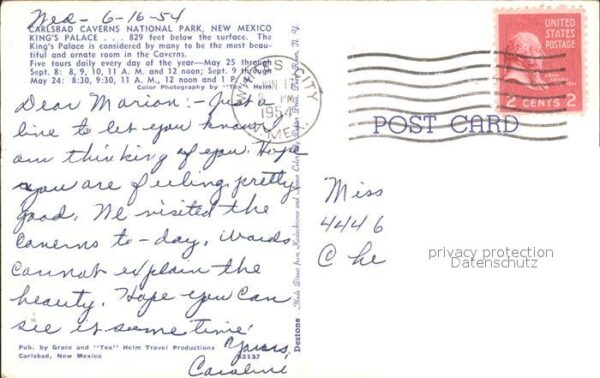 Wed - 6-16-54
CARLSBAD CAVERNS NATIONAL PARK, NEW MEXICO
KING'S PALACE . . . 829 feet below the surface. The
King's Palace is considered by many to be the most beau-
tiful and ornate room in the Caverns.
Five tours daily every day of the year—May 25 through
Sept. 8: 8, 9, 10, 11 A. M. and 12 noon; Sept. 9 through
May 24: 8:30, 9:30, 11 A. M., 12 noon and 1 P.
Color Photography by "Tex" Helm
Dear Marion:- Just a
line to let you know I
am thinking of you. Hope
you are feeling pretty
good. We visited the
caverns to-day, words
cannot explain the
beauty. Hope you can
see it sometime.
Yours,
Caroline
Pub. by Grace and "Tex" Helm Travel Productions
Carlsbad, New Mexico
62137
Dextone Made Direct from Kodachrome and Ansco Color
WHITES CITY
1954
N. MEX.
UNITED
STATES
POSTAGE
2 CENTS 2
POST CARD
Miss
4446
Che
privacy protection
Datenschutz